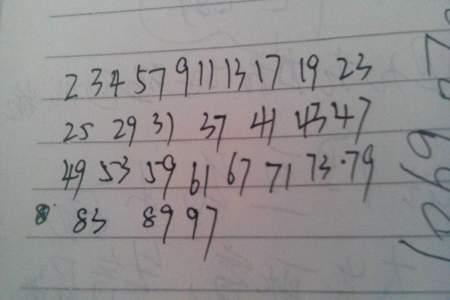 2 3 4 5 7 9 11 13 17 19 23
25 29 31 37 41 43 47
49 53 59 61 67 71 73·79
8 83 89 97